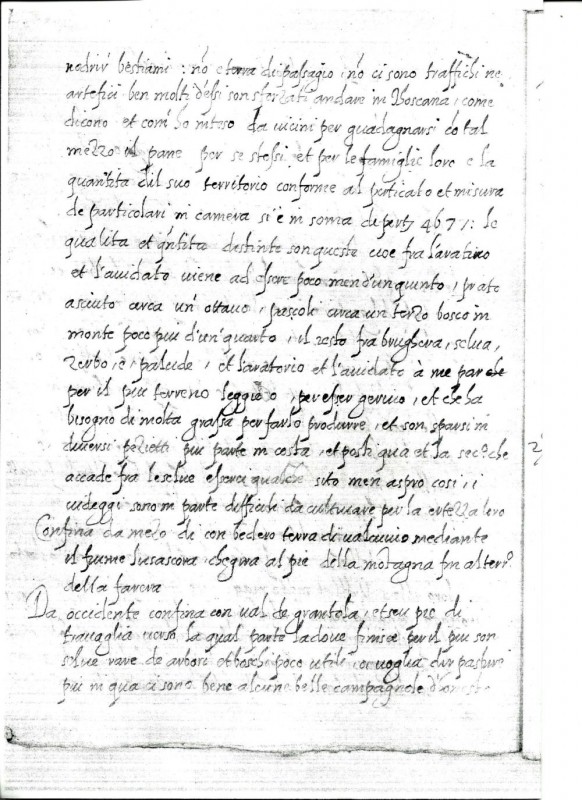 nodrir bestiami : nō è terra di passagio, nō ci sono traffichi ne
artefici ben molti d'essi son sferzati andare in Thoscana, come
dicono et com' ho inteso da vicini per guadagnarsi cō tal
mezzo il pane per se stessi et per le famiglie loro e la
quantita dil suo territorio conforme al perticato et misura
de particolari in camera si è in soma di pert 4677: le
qualita et qntita destinte son queste cioe fra l'aratorio
et l'avidato viene ad essere poco men d'un quinto, prato
asciuto circa un' ottavo, pascoli circa un terzo bosco in
monte poco piu d'un' quarto, il resto fra brughera, selva,
zerbo, e, palude, et l'aratorio et l'avidato à me par che
per il piu terreno leggiero, per esser gerivo, et che ha
bisogno di molta grassa per farlo produrre, et son sparsi in
diversi pezietti piu parte in costa, et posti qua et la seco che
accade fra le selve esserci qualche sito men aspro cosi, i
videggi sono in parte difficili da cultivare per la ertezza loro
Confina da mezo di con bedero terra di valcuvio mediante
il fiume che gira al pie della motagna fin al terro
della
Da occidente confina con val de grantola, et seu pie di
travaglia verso la qual parte ladove finisce per il piu son
selve rare de arbori et boschi poco utili, o voglia dir pasturi
piu in qua ci sono bene alcune belle campagnole
2